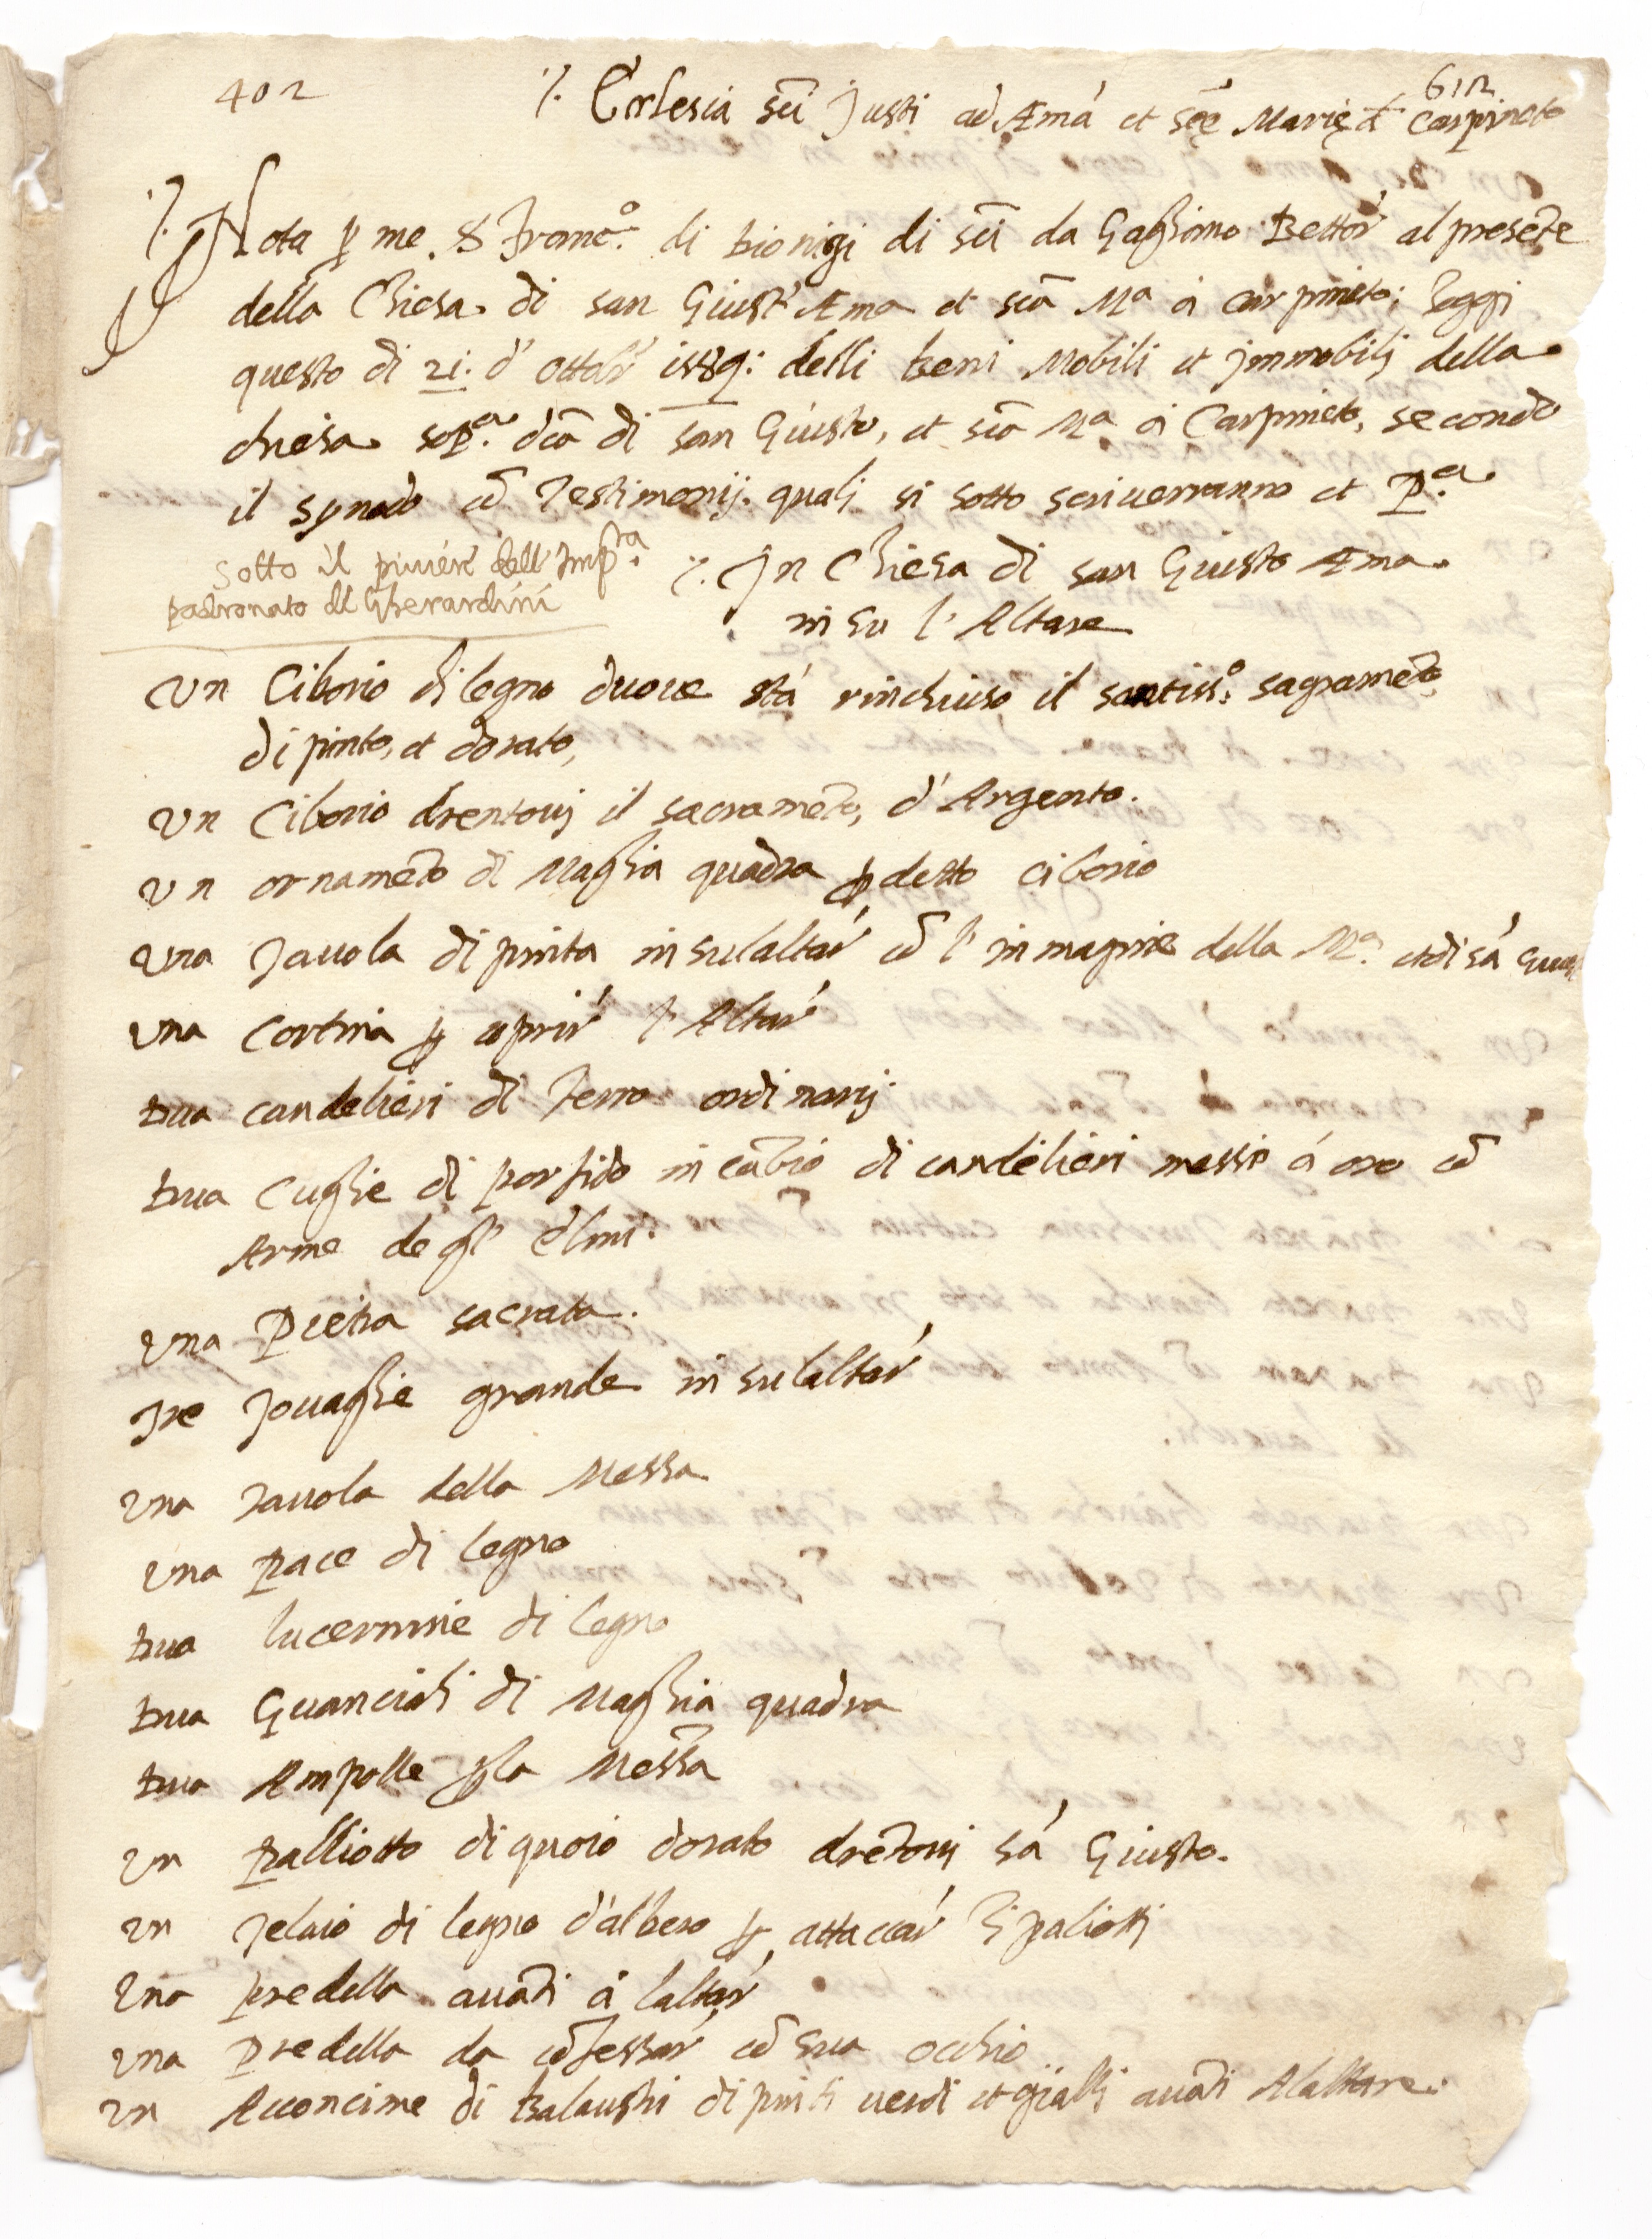 402
612
Ecclesia sči Justi ad Æmá et sčę Marię d Carpineto
Nota p me. S Franc.º di Dionigi di sči da Gaghiano Rettór al presēte
della Chiesa di san Giust' Ema et scā Mª à carpineto; Hoggi
questo di 21. d' Ottōr 1589: delli beni Mobili et jmmobilj della
chiesa sop.ª dcā di san Giusto, et scā Mª à Carpineto, secondo
il synodo cō Testimonij. qualj si sotto scriuerranno et P.ª
sotto il piuiére dell' Imp.ta
padronato dl Gherardini
In Chiesa di san Giusto Ema
in su l' Altare
Un Ciborio di legno duoue stá rinchiuso il santiss.º sagramēto
dipinto, et dorato,
Un Ciborio drentouj il sacramēto, d' Argento.
Un ornamēto di Maghia quadra p detto ciborio
Una Tauola dipinta in sulaltár cō l' immagine della Mª. et di sá
Una Cortina p coprír l' Altár
Dua candelieri di ferro ordinarij
Dua Cughie di porfido in cābio di candélieri messe á oro cō
Arme degl'
Una Pietra sacrata.
Tre Touaghie grande in sulaltár
Una Tauola della Messa
Una pace di legno
Dua lucernine di legno
Dua Guanciali di Maghia quadra
Dua Ampolle pla Messa
Un Palliotto di quoio dorato drētouj sá Giusto.
Un Telaio di legno d'albero p attaccár li paliottj
Una predella auāti á laltár
Una Predella da cōfessár cō sua ochio
Un Acconcime di balaustri dipinti uerdi et giallj auāti Alaltare.